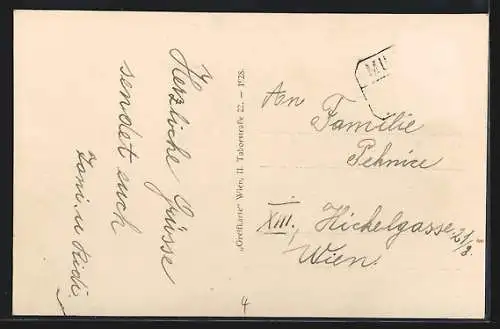 Herzliche Grüsse
sendet euch
Toni. u Rudi.
„Grellkarte" Wien, II. Taborstraße 22. — 1928.
MU
An
Familie
XIII., Hickelgasse 21/8
Wien.
4